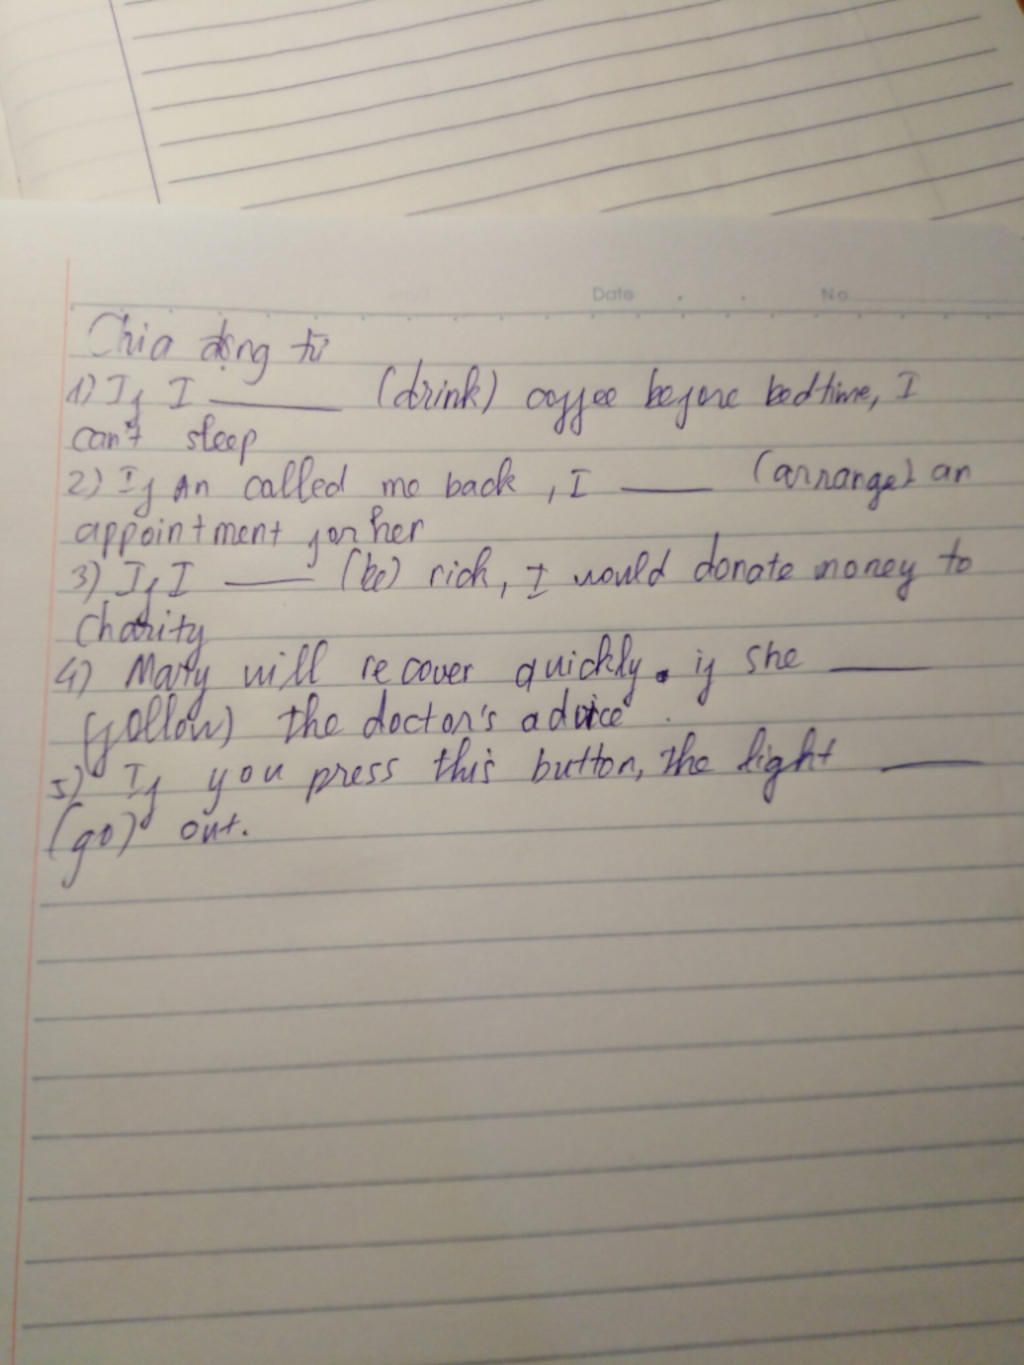 Date
No
Chia động từ
1) If I ______ (drink) coffee before bedtime, I
can't sleep
2) If An called me back, I ____ (arrange) an
appointment for her
3) If I ____ (be) rich, I would donate money to
Charity
4) Mary will recover quickly. if she ____
(follow) the doctor's advice.
5) If you press this button, the light ____
(go) out.